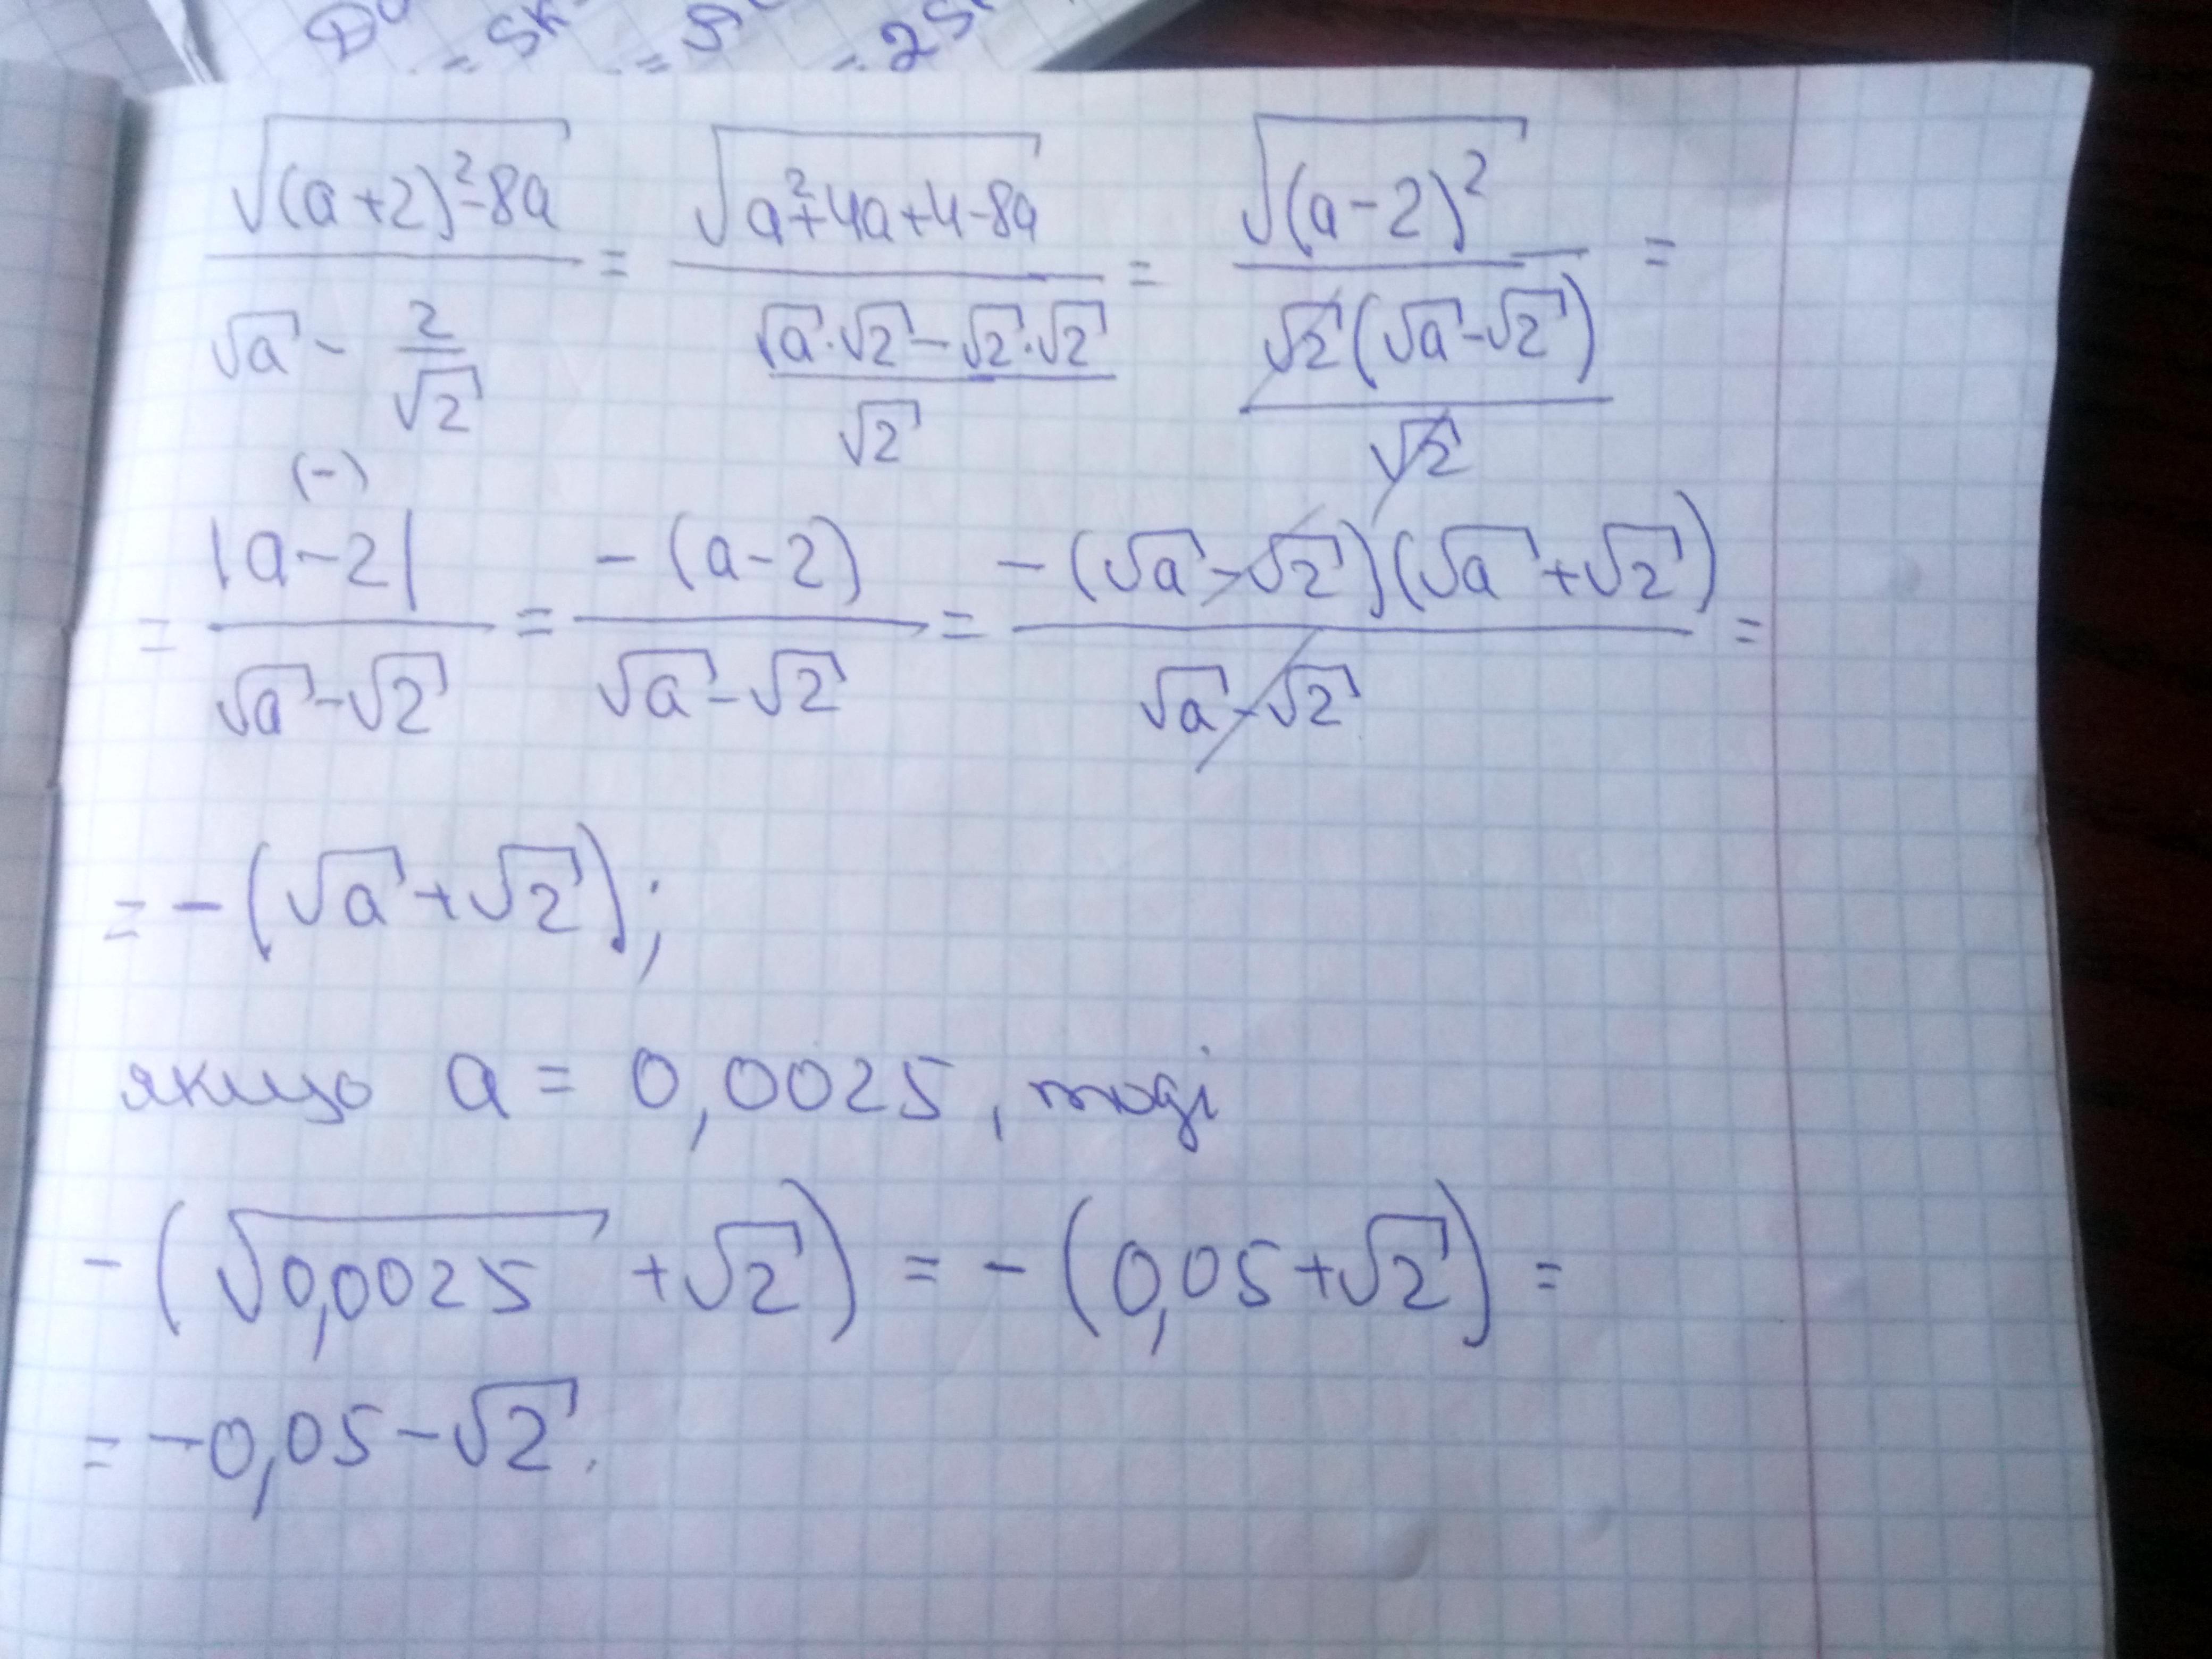 = 5к = = 2
√((a+2)²-8a) / (√a - 2/√2) = √(a²+4a+4-8a) / ((√a·√2-√2·√2)/√2) = √((a-2)²) / (√2(√a-√2)/√2) =
(-)
= |a-2| / (√a-√2) = -(a-2) / (√a-√2) = -(√a-√2)(√a+√2) / (√a-√2) =
= -(√a+√2);
якщо a = 0,0025, тоді
-(√0,0025 + √2) = -(0,05+√2) =
= -0,05-√2.